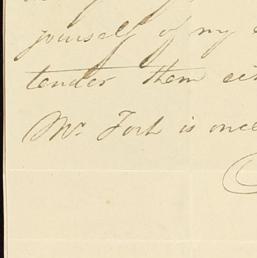 yourself of my
tender them eit
Mr. Fort is once